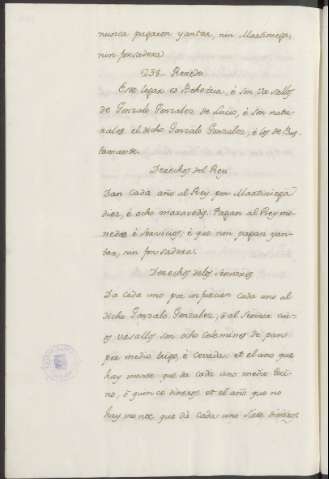 nunca pagaron yantar, nin Martiniega,
nin fonsadera
238. Reneda
Este logar es Behetria, é son vasallos
de Gonzalo Gonzalez de Lucio, é son natu-
rales el dicho Gonzalo Gonzalez, é los de Bus-
tamante.
Derechos del Rey
Dan cada año al Rey por Martiniega
diez, é ocho maravedis. Pagan al Rey mo-
nedas é servicios, é que non pagan yan-
tar, nin fonsadera.
Derechos delos Senores
Da cada uno por infurcion cada uno al
dicho Gonzalo Gonzalez, ó al Senior cu-
yos vasallos son ocho celemines de pan
por medio trigo, é cevada et el ano que
hay monte que da cada uno medio toci-
no, é quince dineros et el año que no
hay monte que da cada uno siete dineros